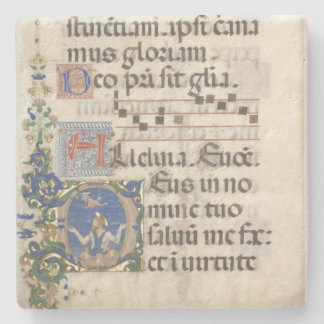 stinctiam. ipsi cāna
mus gloriam.
Deo pr̄i sit gl̄ia.
Alleluia. Euoē.
Deus in no
mine tuo
saluū me fac
et i uirtute